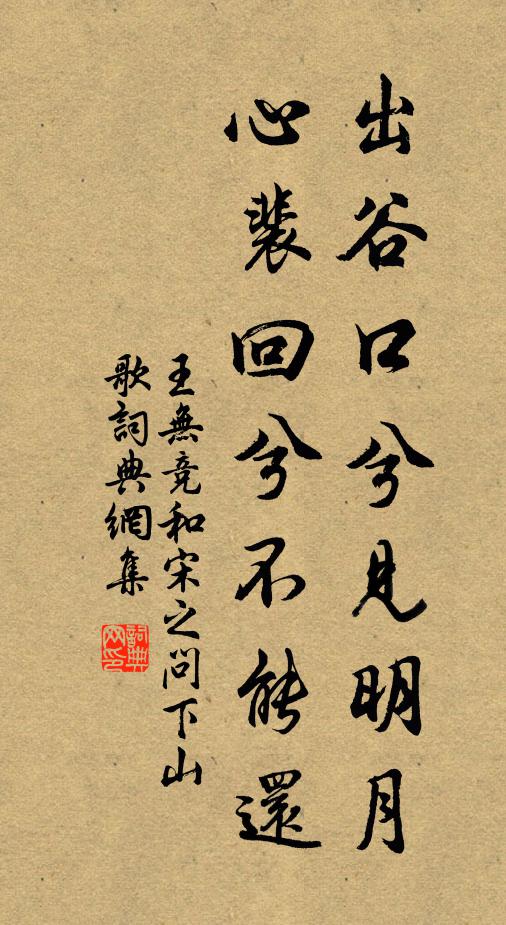 出谷口兮見明月
心裴回兮不能還
王無竞和宋之問下山
歌詞典網集
詞典
网印